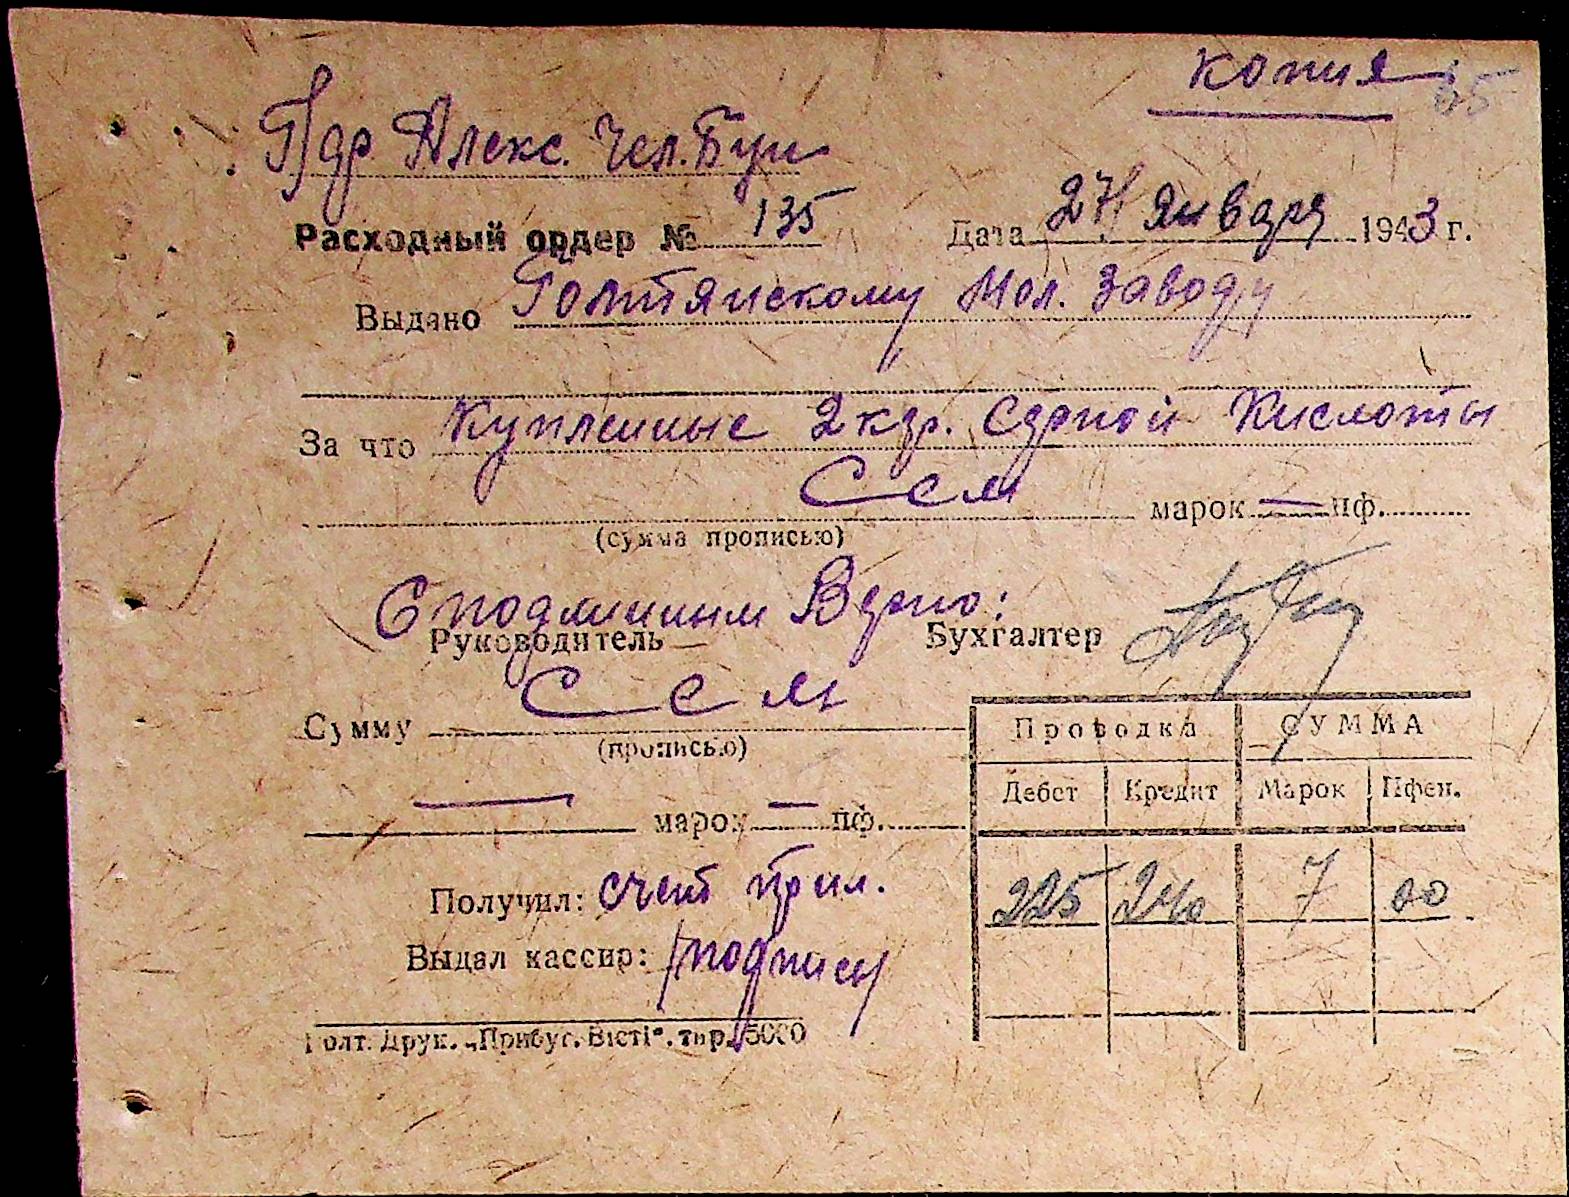 копия 65
Пдр. Алекс. Чел. Буи
Расходный ордер № 135 Дата 27/ Января 1943 г.
Выдано Голтянскому Мол. Заводу
За что Купленные 2 кгр. Серной Кислоты
Сем марок — пф.
(сумма прописью)
С подлинным Верно:
Руководитель Бухгалтер
Сумму Сем
(прописью)
— марок — пф.
Проводка СУММА
Дебет Кредит Марок Пфен.
225 240 7 00
Получил: счет прил.
Выдал кассир: /подписи/
Голт. Друк. „Прибуг. Вісті“. тир. 5000